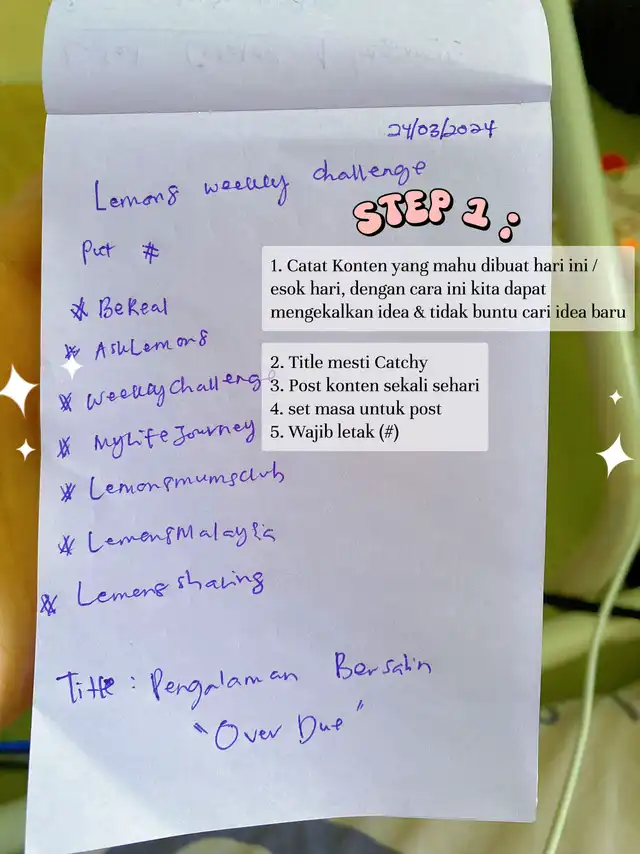 24/03/2024
Lemon8 weekly challenge
STEP 1 :
Put #
1. Catat Konten yang mahu dibuat hari ini /
esok hari, dengan cara ini kita dapat
mengekalkan idea & tidak buntu cari idea baru
# BeReal
# AskLemon8
2. Title mesti Catchy
3. Post konten sekali sehari
4. set masa untuk post
5. Wajib letak (#)
# weeklyChallenge
# MyLifeJourney
# Lemon8mumsclub
# Lemon8Malaysia
# Lemon8sharing
Title : Pengalaman Bersalin
"Over Due"